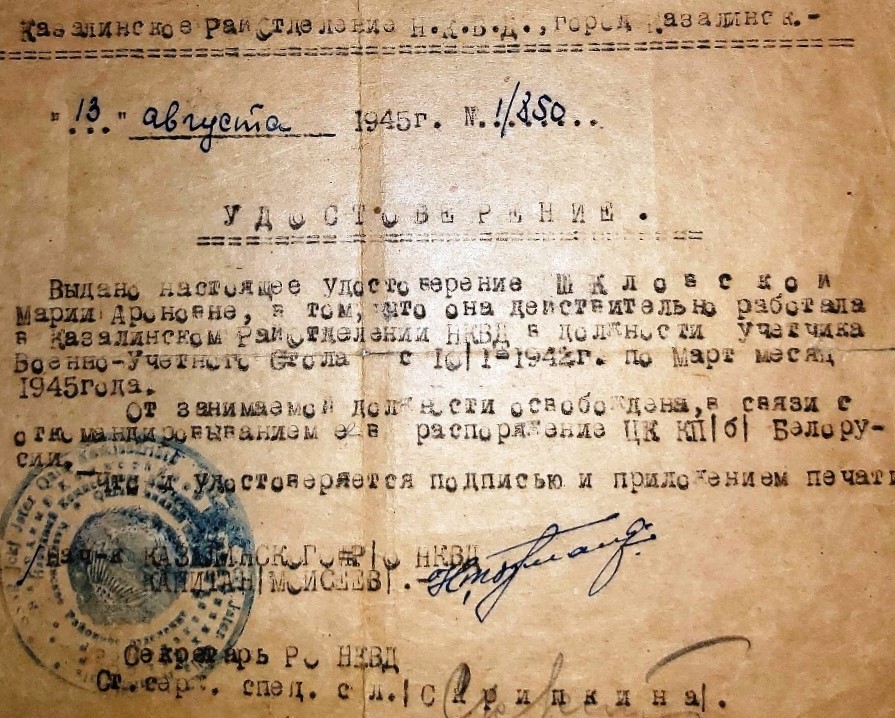 Казалинское РайОтделение Н.К.В.Д., город Казалинск.-
"13" августа 1945г. №.1/850..
УДОСТОВЕРЕНИЕ.
Выдано настоящее удостоверение Шкловской
Марии Ароновне, в том, что она действительно работала
в Казалинском РайОтделении НКВД в должности учетчика
Военно-Учетного Стола с 10/1-1942г. по Март месяц
1945года.
От занимаемой должности освобождена, в связи с
откомандировыванием ее в распоряжение ЦК КП/б/ Белору-
сии.
Что и удостоверяется подписью и приложением печати
Нач-к КАЗАЛИНСКОГО Р/О НКВД
КАПИТАН /МОИСЕЕВ/.
Секретарь РО НКВД
Ст.серж. спец. сл. /Скрипкина/.